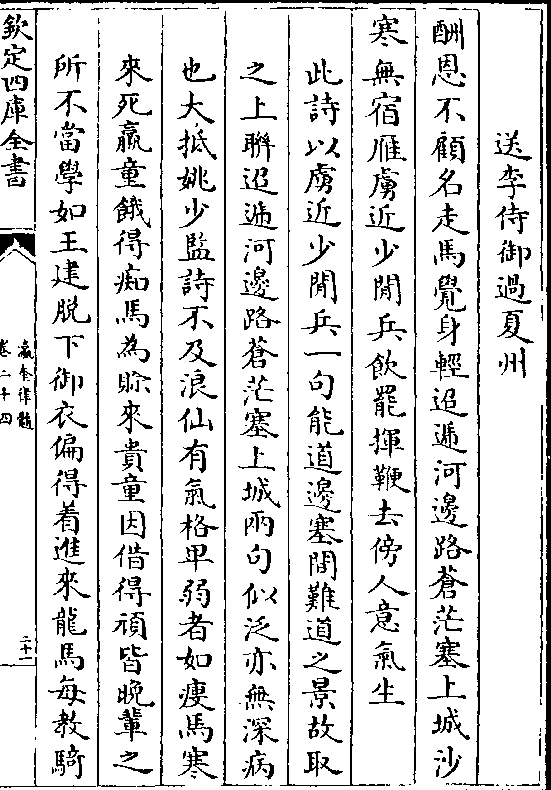 送李侍御過夏州
酬恩不顧名走馬覺身輕迢遞河邊路蒼茫塞上城沙
寒無宿雁虜近少閒兵飲罷揮鞭去傍人意氣生
此詩以虜近少閒兵一句能道邊塞間難道之景故取
之上聯迢遞河邊路蒼茫塞上城兩句似泛亦無深病
也大抵姚少監詩不及浪仙有氣格卑弱者如瘦馬寒
來死羸童餓得痴馬為賒來貴童因借得頑皆晚輩之
所不當學如王建脱下御衣偏得着進來龍馬每教騎
欽定四庫全書
瀛奎律髓
卷二十四
二十一